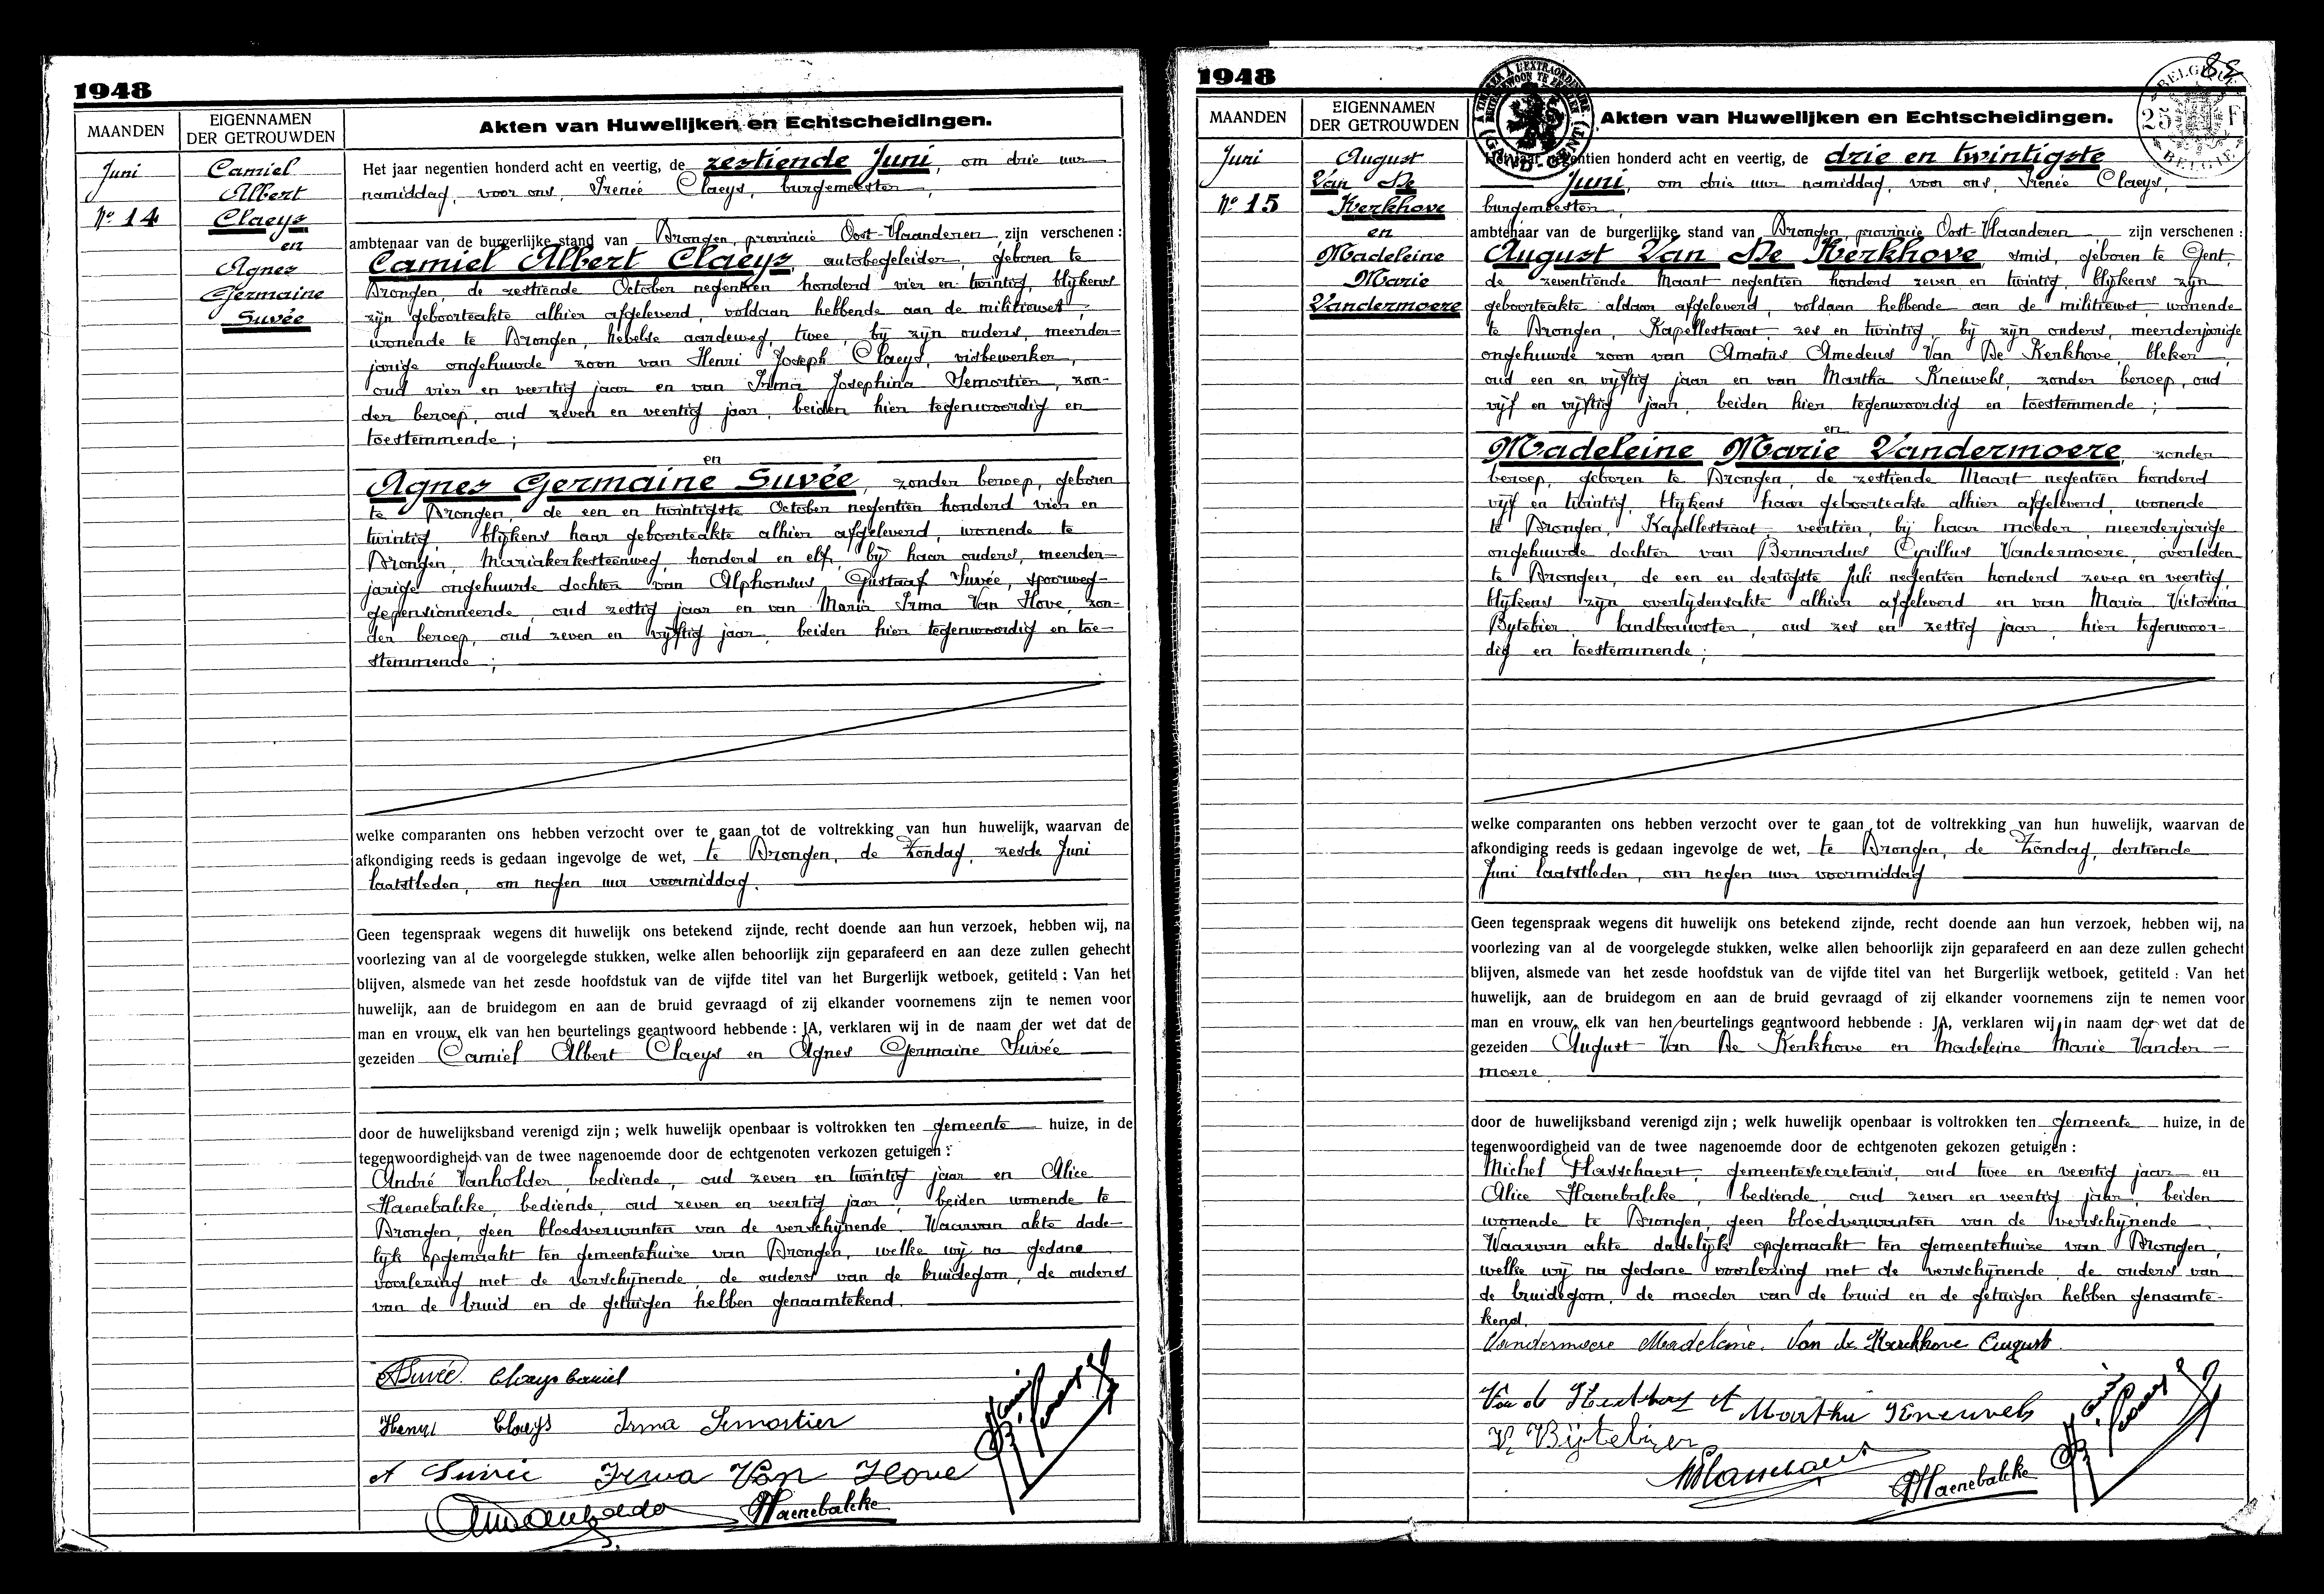 1948
MAANDEN
EIGENNAMEN
DER GETROUWDEN
Akten van Huwelijken en Echtscheidingen.
Juni
Nº 14
Camiel
Albert
Claeys
en
Agnes
Germaine
Suvée
Het jaar negentien honderd acht en veertig, de zestiende Juni, om drie uur
namiddag, voor ons, Irenée Claeys, burgemeester,
ambtenaar van de burgerlijke stand van Drongen, provincie Oost-Vlaanderen zijn verschenen:
Camiel Albert Claeys, autobegeleider, geboren te
Drongen, de zestiende October negentien honderd vier en twintig, blijkens
zijn geboorteakte alhier afgeleverd, voldaan hebbende aan de militiewet,
wonende te Drongen, hebelse aardeweg, twee, bij zijn ouders, meerder-
jarige ongehuwde zoon van Henri Joseph Claeys, visbewerker,
oud vier en veertig jaar en van Irma Josephina Semortier, zon-
der beroep, oud zeven en veertig jaar, beiden hier tegenwoordig en
toestemmende;
en
Agnes Germaine Suvée, zonder beroep, geboren
te Drongen, de een en twintigste October negentien honderd vier en
twintig, blijkens haar geboorteakte alhier afgeleverd, wonende te
Drongen, Mariakerkesteenweg, honderd en elf, bij haar ouders, meerder-
jarige ongehuwde dochter van Alphonsus, Gustaaf Suvée, spoorweg-
gepensionneerde, oud zestig jaar en van Maria Irma Van Hove, zon-
der beroep, oud zeven en vijftig jaar, beiden hier tegenwoordig en toe-
stemmende;
welke comparanten ons hebben verzocht over te gaan tot de voltrekking van hun huwelijk, waarvan de
afkondiging reeds is gedaan ingevolge de wet, te Drongen, de Zondag, zesde Juni
laatstleden, om negen uur voormiddag.
Geen tegenspraak wegens dit huwelijk ons betekend zijnde, recht doende aan hun verzoek, hebben wij, na
voorlezing van al de voorgelegde stukken, welke allen behoorlijk zijn geparafeerd en aan deze zullen gehecht
blijven, alsmede van het zesde hoofdstuk van de vijfde titel van het Burgerlijk wetboek, getiteld: Van het
huwelijk, aan de bruidegom en aan de bruid gevraagd of zij elkander voornemens zijn te nemen voor
man en vrouw, elk van hen beurtelings geantwoord hebbende: JA, verklaren wij in de naam der wet dat de
gezeiden Camiel Albert Claeys en Agnes Germaine Suvée
door de huwelijksband verenigd zijn; welk huwelijk openbaar is voltrokken ten gemeente huize, in de
tegenwoordigheid van de twee nagenoemde door de echtgenoten verkozen getuigen:
André Vanholder, bediende, oud zeven en twintig jaar en Alice
Haenebalcke, bediende, oud zeven en veertig jaar, beiden wonende te
Drongen, geen bloedverwanten van de verschijnende. Waarvan akte dade-
lijk opgemaakt ten gemeentehuize van Drongen, welke wij na gedane
voorlezing met de verschijnende, de ouders van de bruidegom, de ouders
van de bruid en de getuigen hebben genaamtekend.
ASuvée Claeys Camiel
Henri Claeys Irma Semortier
A Suvée Irma Van Hove
AHaenebalcke
1948
MAANDEN
EIGENNAMEN
DER GETROUWDEN
Akten van Huwelijken en Echtscheidingen.
BELGIQUE
25 F
BELGIE
Juni
Nº 15
August
Van De
Kerkhove
en
Madeleine
Marie
Vandermoere
Het jaar negentien honderd acht en veertig, de drie en twintigste
Juni, om drie uur namiddag, voor ons, Irenée Claeys,
burgemeester,
ambtenaar van de burgerlijke stand van Drongen, provincie Oost-Vlaanderen zijn verschenen:
August Van De Kerkhove, smid, geboren te Gent,
de zeventiende Maart negentien honderd zeven en twintig, blijkens zijn
geboorteakte aldaar afgeleverd, voldaan hebbende aan de militiewet, wonende
te Drongen, Kapellestraat, zes en twintig, bij zijn ouders, meerderjarige
ongehuwde zoon van Amatus Amedeus Van De Kerkhove, bleker,
oud een en vijftig jaar en van Martha Kneuvels, zonder beroep, oud
vijf en vijftig jaar, beiden hier tegenwoordig en toestemmende;
en
Madeleine Marie Vandermoere, zonder
beroep, geboren te Drongen, de zestiende Maart negentien honderd
vijf en twintig, blijkens haar geboorteakte alhier afgeleverd, wonende
te Drongen, Kapellestraat, veertien, bij haar moeder, meerderjarige
ongehuwde dochter van Bernardus Cyrillus Vandermoere, overleden
te Drongen, de een en dertigste Juli negentien honderd zeven en veertig,
blijkens zijn overlijdensakte alhier afgeleverd en van Maria Victorina
Bytebier, landbouwster, oud zes en zestig jaar, hier tegenwoor-
dig en toestemmende;
welke comparanten ons hebben verzocht over te gaan tot de voltrekking van hun huwelijk, waarvan de
afkondiging reeds is gedaan ingevolge de wet, te Drongen, de Zondag, dertiende
Juni laatstleden, om negen uur voormiddag
Geen tegenspraak wegens dit huwelijk ons betekend zijnde, recht doende aan hun verzoek, hebben wij, na
voorlezing van al de voorgelegde stukken, welke allen behoorlijk zijn geparafeerd en aan deze zullen gehecht
blijven, alsmede van het zesde hoofdstuk van de vijfde titel van het Burgerlijk wetboek, getiteld: Van het
huwelijk, aan de bruidegom en aan de bruid gevraagd of zij elkander voornemens zijn te nemen voor
man en vrouw, elk van hen beurtelings geantwoord hebbende: JA, verklaren wij in naam der wet dat de
gezeiden August Van De Kerkhove en Madeleine Marie Vander-
moere.
door de huwelijksband verenigd zijn; welk huwelijk openbaar is voltrokken ten gemeente huize, in de
tegenwoordigheid van de twee nagenoemde door de echtgenoten gekozen getuigen:
Michel Hasschaert, gemeentesecretaris, oud twee en veertig jaar en
Alice Haenebalcke, bediende, oud zeven en veertig jaar, beiden
wonende te Drongen, geen bloedverwanten van de verschijnende.
Waarvan akte dadelijk opgemaakt ten gemeentehuize van Drongen,
welke wij na gedane voorlezing met de verschijnende, de ouders van
de bruidegom, de moeder van de bruid en de getuigen hebben genaamte-
kend.
Vandermoere Madeleine. Van de Kerckhove August.
Martha Kneuvels
V. Bijtebier
AHaenebalcke